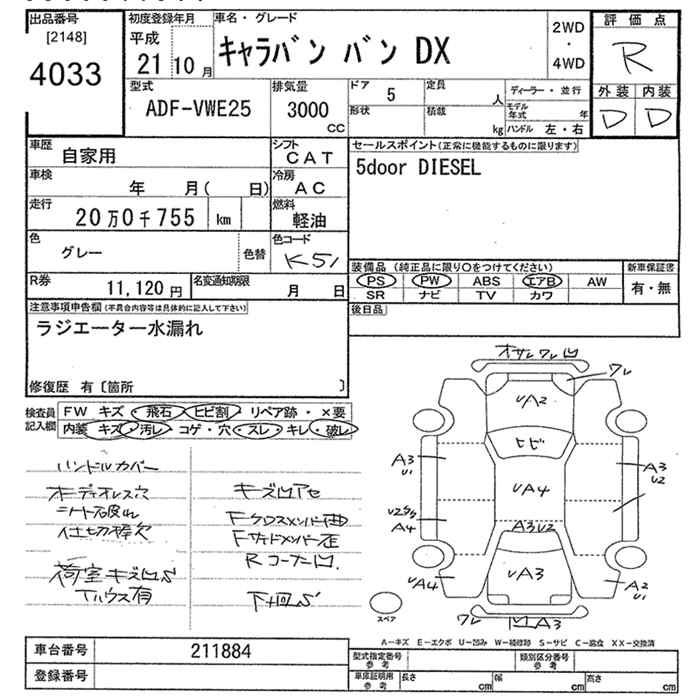 出品番号
[2148]
4033
初度登録年月
平成
21 10 月
車名・グレード
キャラバン バン DX
2WD
・
4WD
評価点
R
外装 内装
D D
型式
ADF-VWE25
排気量
3000
CC
ドア 5
形状
定員 人
積載 kg
ディーラー・並行
モデル年式 年
ハンドル 左・右
車歴 自家用
シフト CAT
車検 年 月( 日)
冷房 AC
走行 20万0千755 km
燃料 軽油
色 グレー 色替
色コード K51
R券 11,120円
名変通知期限 月 日
セールスポイント(正常に機能するものに限ります)
5door DIESEL
装備品(純正品に限り○をつけてください)
PS PW ABS エアB AW
SR ナビ TV カワ
新車保証書
有・無
後日品
注意事項申告欄(不具合内容等は具体的に記入して下さい)
ラジエーター水漏れ
修復歴 有〔箇所 〕
検査員記入欄
FW キズ・飛石・ヒビ割・リペア跡・×要
内装 キズ・汚レ・コゲ・穴・スレ・キレ・破レ
ハンドルカバー
オーディオレス穴
シート破れ
仕切棒欠
荷室キズ凹S
Tハウス有
キズ凹アセ
Fクロスメンバー曲
Rコーナー凹
下廻S
ワレ
UA2
ヒビ
A3
U1
UA4
A3
U2
A4
A3U2
UA4
UA3
A2
U1
ワレ
凹A3
スペア
A-キズ E-エクボ U-凹み W-補修跡 S-サビ C-腐食 XX-交換済
車台番号 211884
登録番号
型式指定番号
参考
類別区分番号
参考
車庫証明用
参考
長さ cm
幅 cm
高さ cm